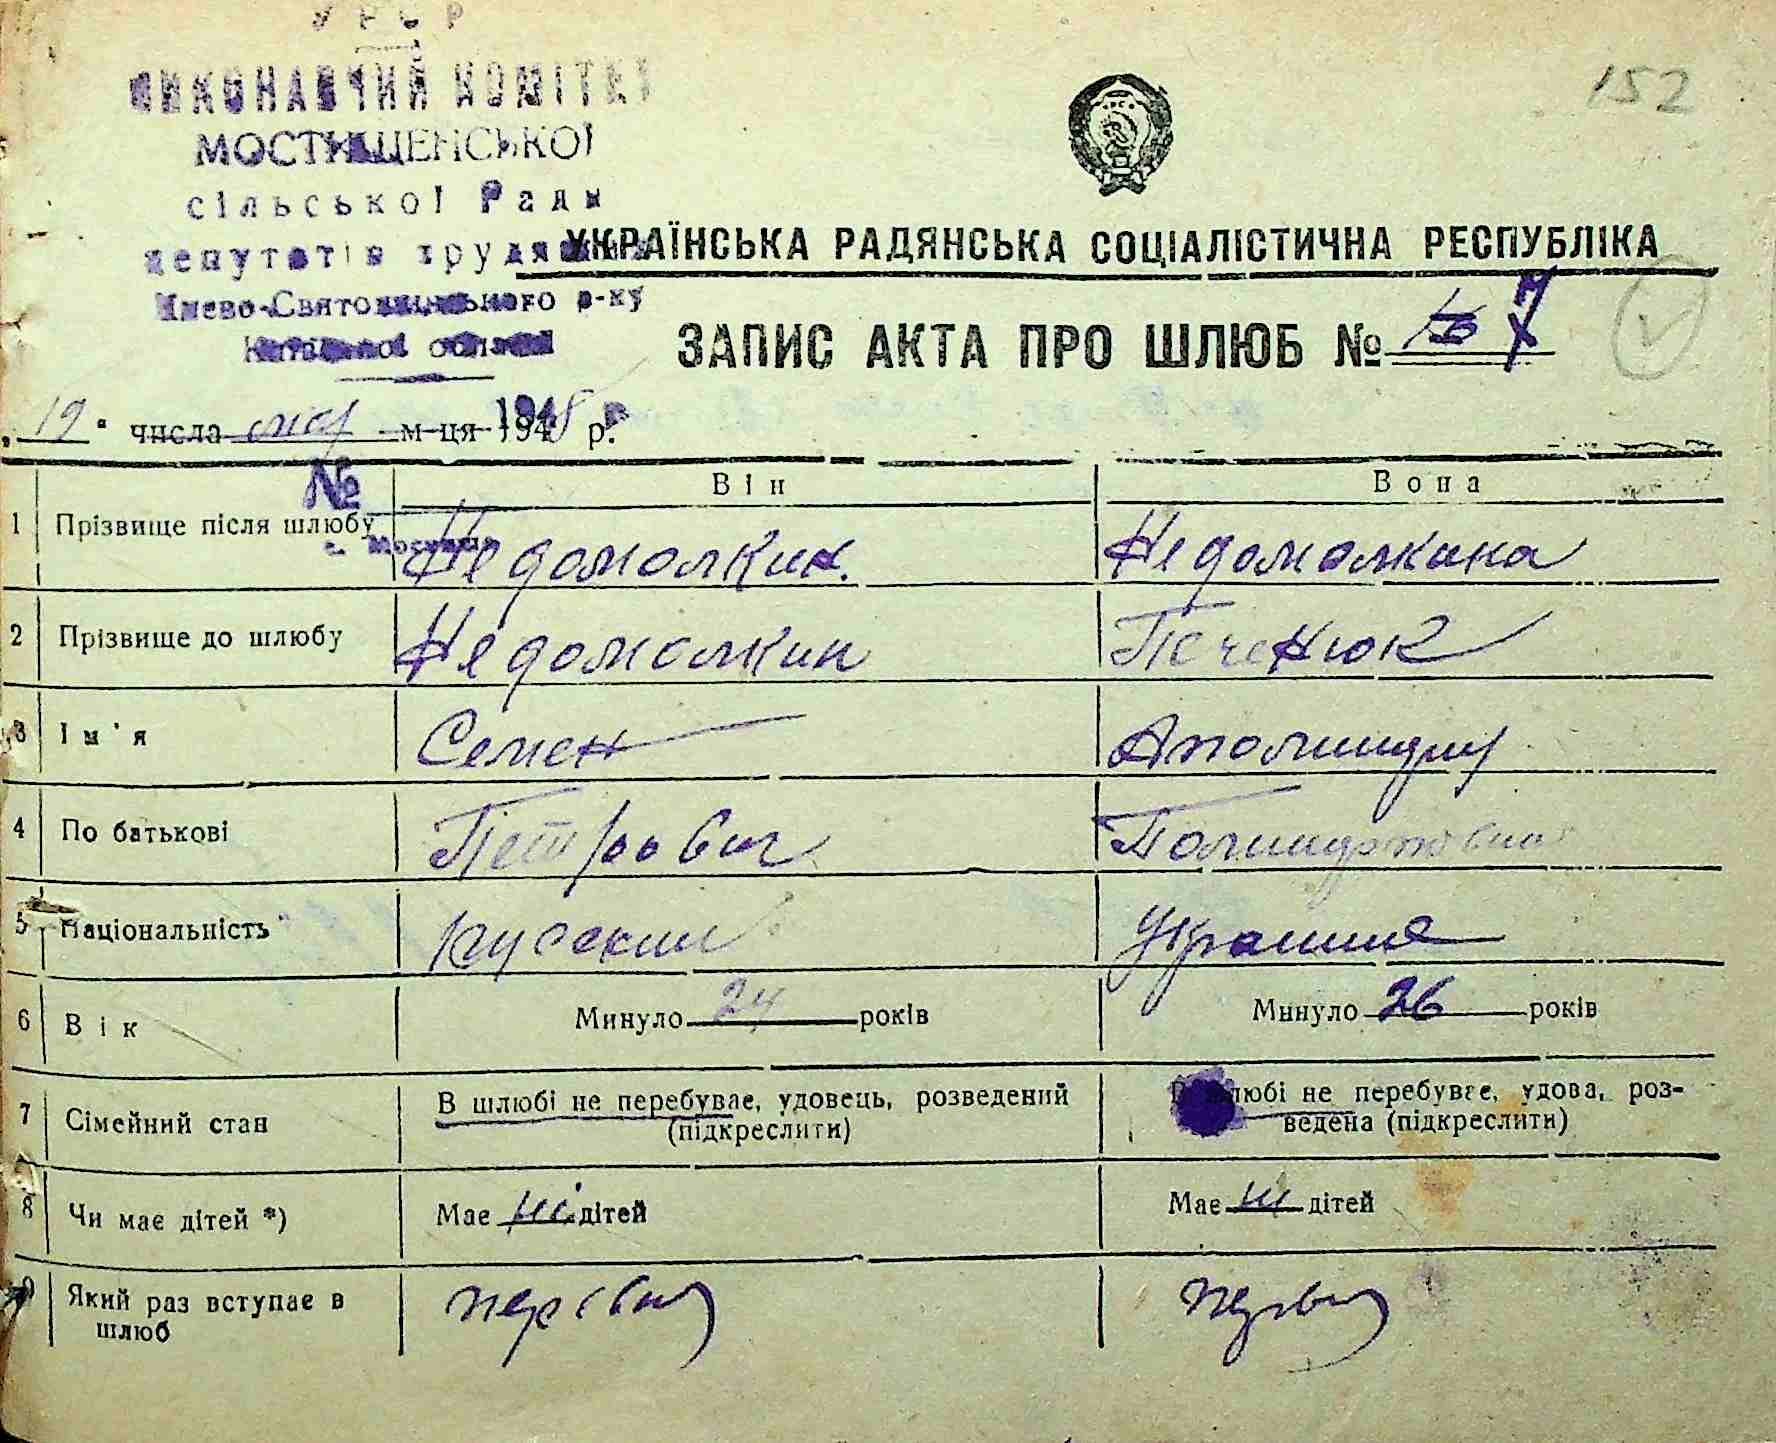 У Р С Р
ВИКОНАВЧИЙ КОМІТЕТ
МОСТИЩЕНСЬКОЇ
сільської Ради
депутатів трудящих
Києво-Святошинського р-ну
Київської області
№
152
УКРАЇНСЬКА РАДЯНСЬКА СОЦІАЛІСТИЧНА РЕСПУБЛІКА
ЗАПИС АКТА ПРО ШЛЮБ №
„19" числа м-ця 1948 р.
Він Вона
1 Прізвище після шлюбу Недомолкин. Недомолкина
2 Прізвище до шлюбу Недомолкин Печенюк
3 Ім'я Семен
4 По батькові Петрович
5 Національність русский
6 Вік Минуло 24 років Минуло 26 років
7 Сімейний стан В шлюбі не перебуває, удовець, розведений (підкреслити) В шлюбі не перебуває, удова, роз-
ведена (підкреслити)
8 Чи має дітей *) Має ні дітей Має ні дітей
9 Який раз вступає в
шлюб